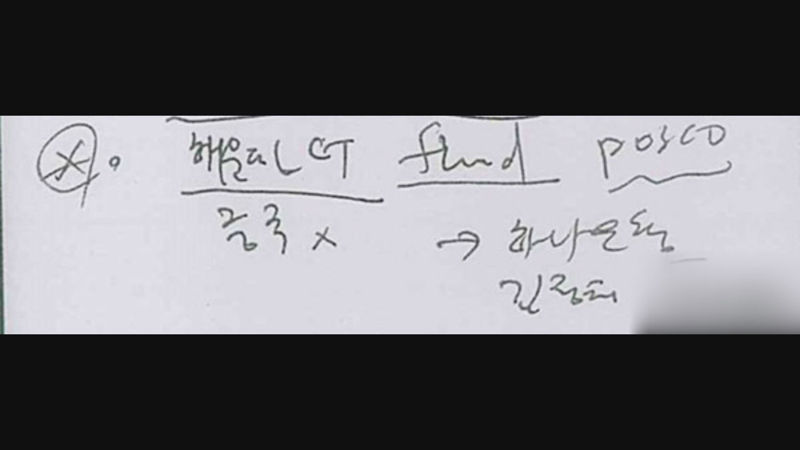 해운대 LCT fund POSCO
중국 X → 하나은행
김정태